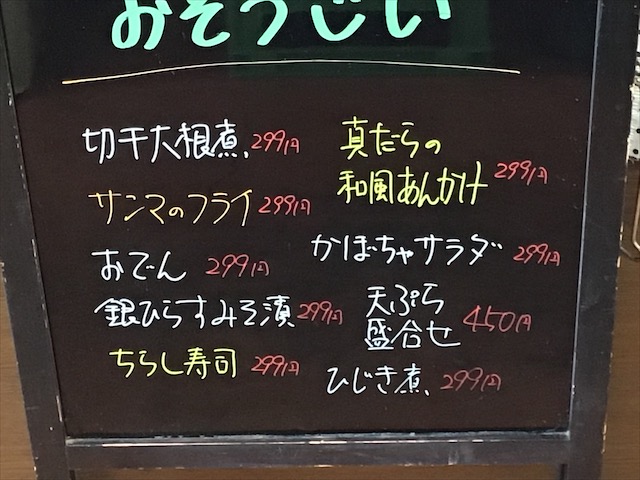 おそうじい
切干大根煮、299円
サンマのフライ 299円
おでん 299円
銀ひらすみそ漬 299円
ちらし寿司 299円
真たらの
和風あんかけ 299円
かぼちゃサラダ 299円
天ぷら
盛合せ 450円
ひじき煮、299円